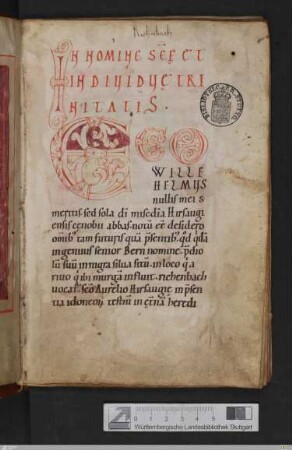 Reichenbach
IN NOMINE SCĘ ET
INDIVIDVĘ TRI
NITATIS.
EGO
WILLE
HELMVS
nullis meis
meritis sed sola dī mis̄edia Hirsaugi
ensis cenobii abbas notū eē desidero
omib; tam futuris quā psentib; qd qda
ingenuus senior Bern nomine pdio
lū suū in nigra silua sitū in loco q̄ a
riuo q̄ ibi murgā influit richenbach
vocat̄ sc̄o Aurelio Hirsaugię in psen
tia idoneoꝝ testiū in etnā heredi
Württembergische Landesbibliothek Stuttgart